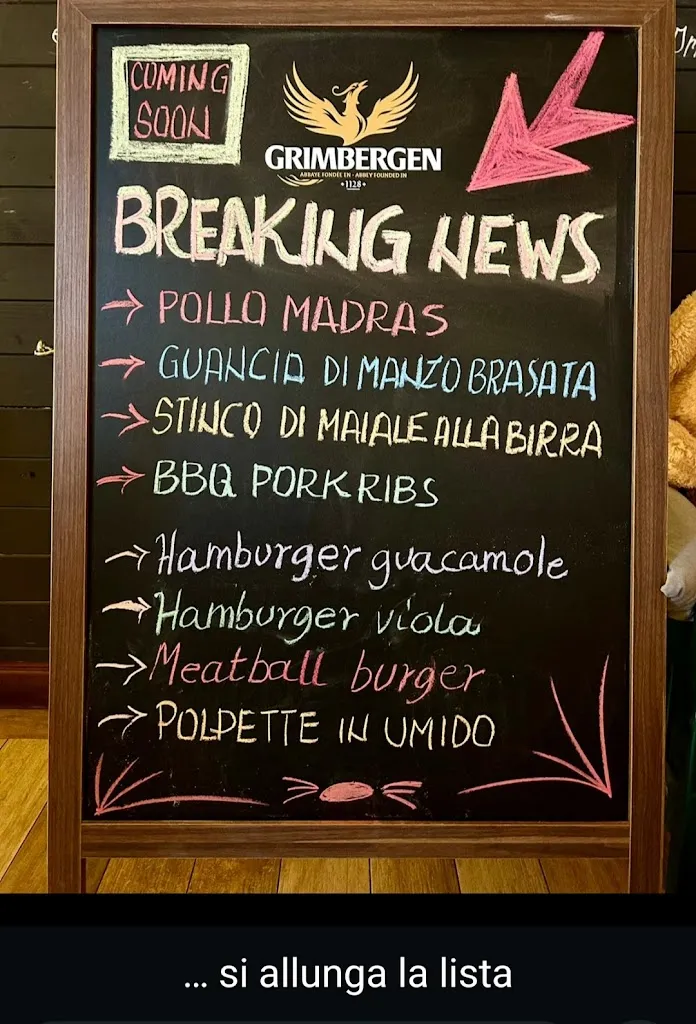 COMING
SOON
GRIMBERGEN
ABBAYE FONDÉE EN - ABBEY FOUNDED IN
•1128•
BREAKING NEWS
→ POLLO MADRAS
→ GUANCIA DI MANZO BRASATA
→ STINCO DI MAIALE ALLA BIRRA
→ BBQ PORK RIBS
→ Hamburger guacamole
→ Hamburger viola
→ Meatball burger
→ POLPETTE IN UMIDO
... si allunga la lista